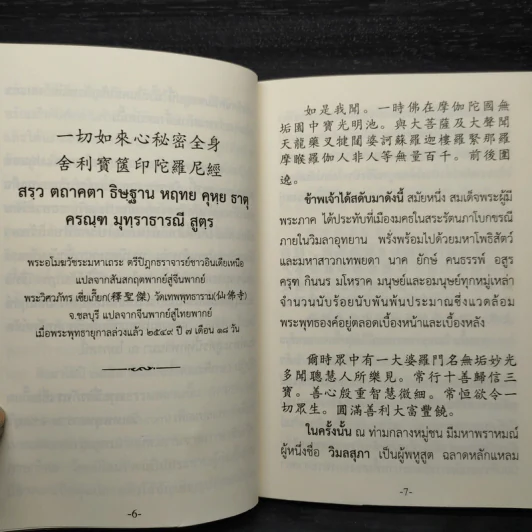 一切如來心秘密全身
舍利寶篋印陀羅尼經
สรฺว ตถาคตา ธิษฐาน หฤทย คุหฺย ธาตุ
ครณฺฑ มุทฺราธารณี สูตฺร
พระอโมฆวัชระมหาเถระ ตรีปิฎกธราจารย์ชาวอินเดียเหนือ
แปลจากสันสกฤตพากย์สู่จีนพากย์
พระวิศวภัทร เซี่ยเกี๊ยก(釋聖傑) วัดเทพพุทธาราม(仙佛寺)
จ.ชลบุรี แปลจากจีนพากย์สู่ไทยพากย์
เมื่อพระพุทธายุกาลล่วงแล้ว ๒๕๔๙ ปี ๗ เดือน ๑๘ วัน
-6-
如是我聞。一時佛在摩伽陀國無
垢園中寶光明池。與大菩薩及大聲聞
天龍藥叉犍闥婆訶蘇羅迦樓羅緊那羅
摩睺羅伽人非人等無量百千。前後圍
遶。
ข้าพเจ้าได้สดับมาดังนี้ สมัยหนึ่ง สมเด็จพระผู้มี
พระภาค ได้ประทับที่เมืองมคธในสระรัตนภาโบกขรณี
ภายในวิมลาอุทยาน พรั่งพร้อมไปด้วยมหาโพธิสัตว์
และมหาสาวกเทพยดา นาค ยักษ์ คนธรรพ์ อสูร
ครุฑ กินนร มโหราค มนุษย์และอมนุษย์ทุกหมู่เหล่า
จำนวนนับร้อยนับพันพ้นประมาณซึ่งแวดล้อม
พระพุทธองค์อยู่ตลอดเบื้องหน้าและเบื้องหลัง
爾時眾中有一大婆羅門名無垢妙光
多聞聰慧人所樂見。常行十善歸信三
寶。善心殷重智慧微細。常恒欲令一
切眾生。圓滿善利大富豐饒。
ในครั้งนั้น ณ ท่ามกลางหมู่ชน มีมหาพราหมณ์
ผู้หนึ่งชื่อ วิมลสุภา เป็นผู้พหูสูต ฉลาดหลักแหลม
-7-